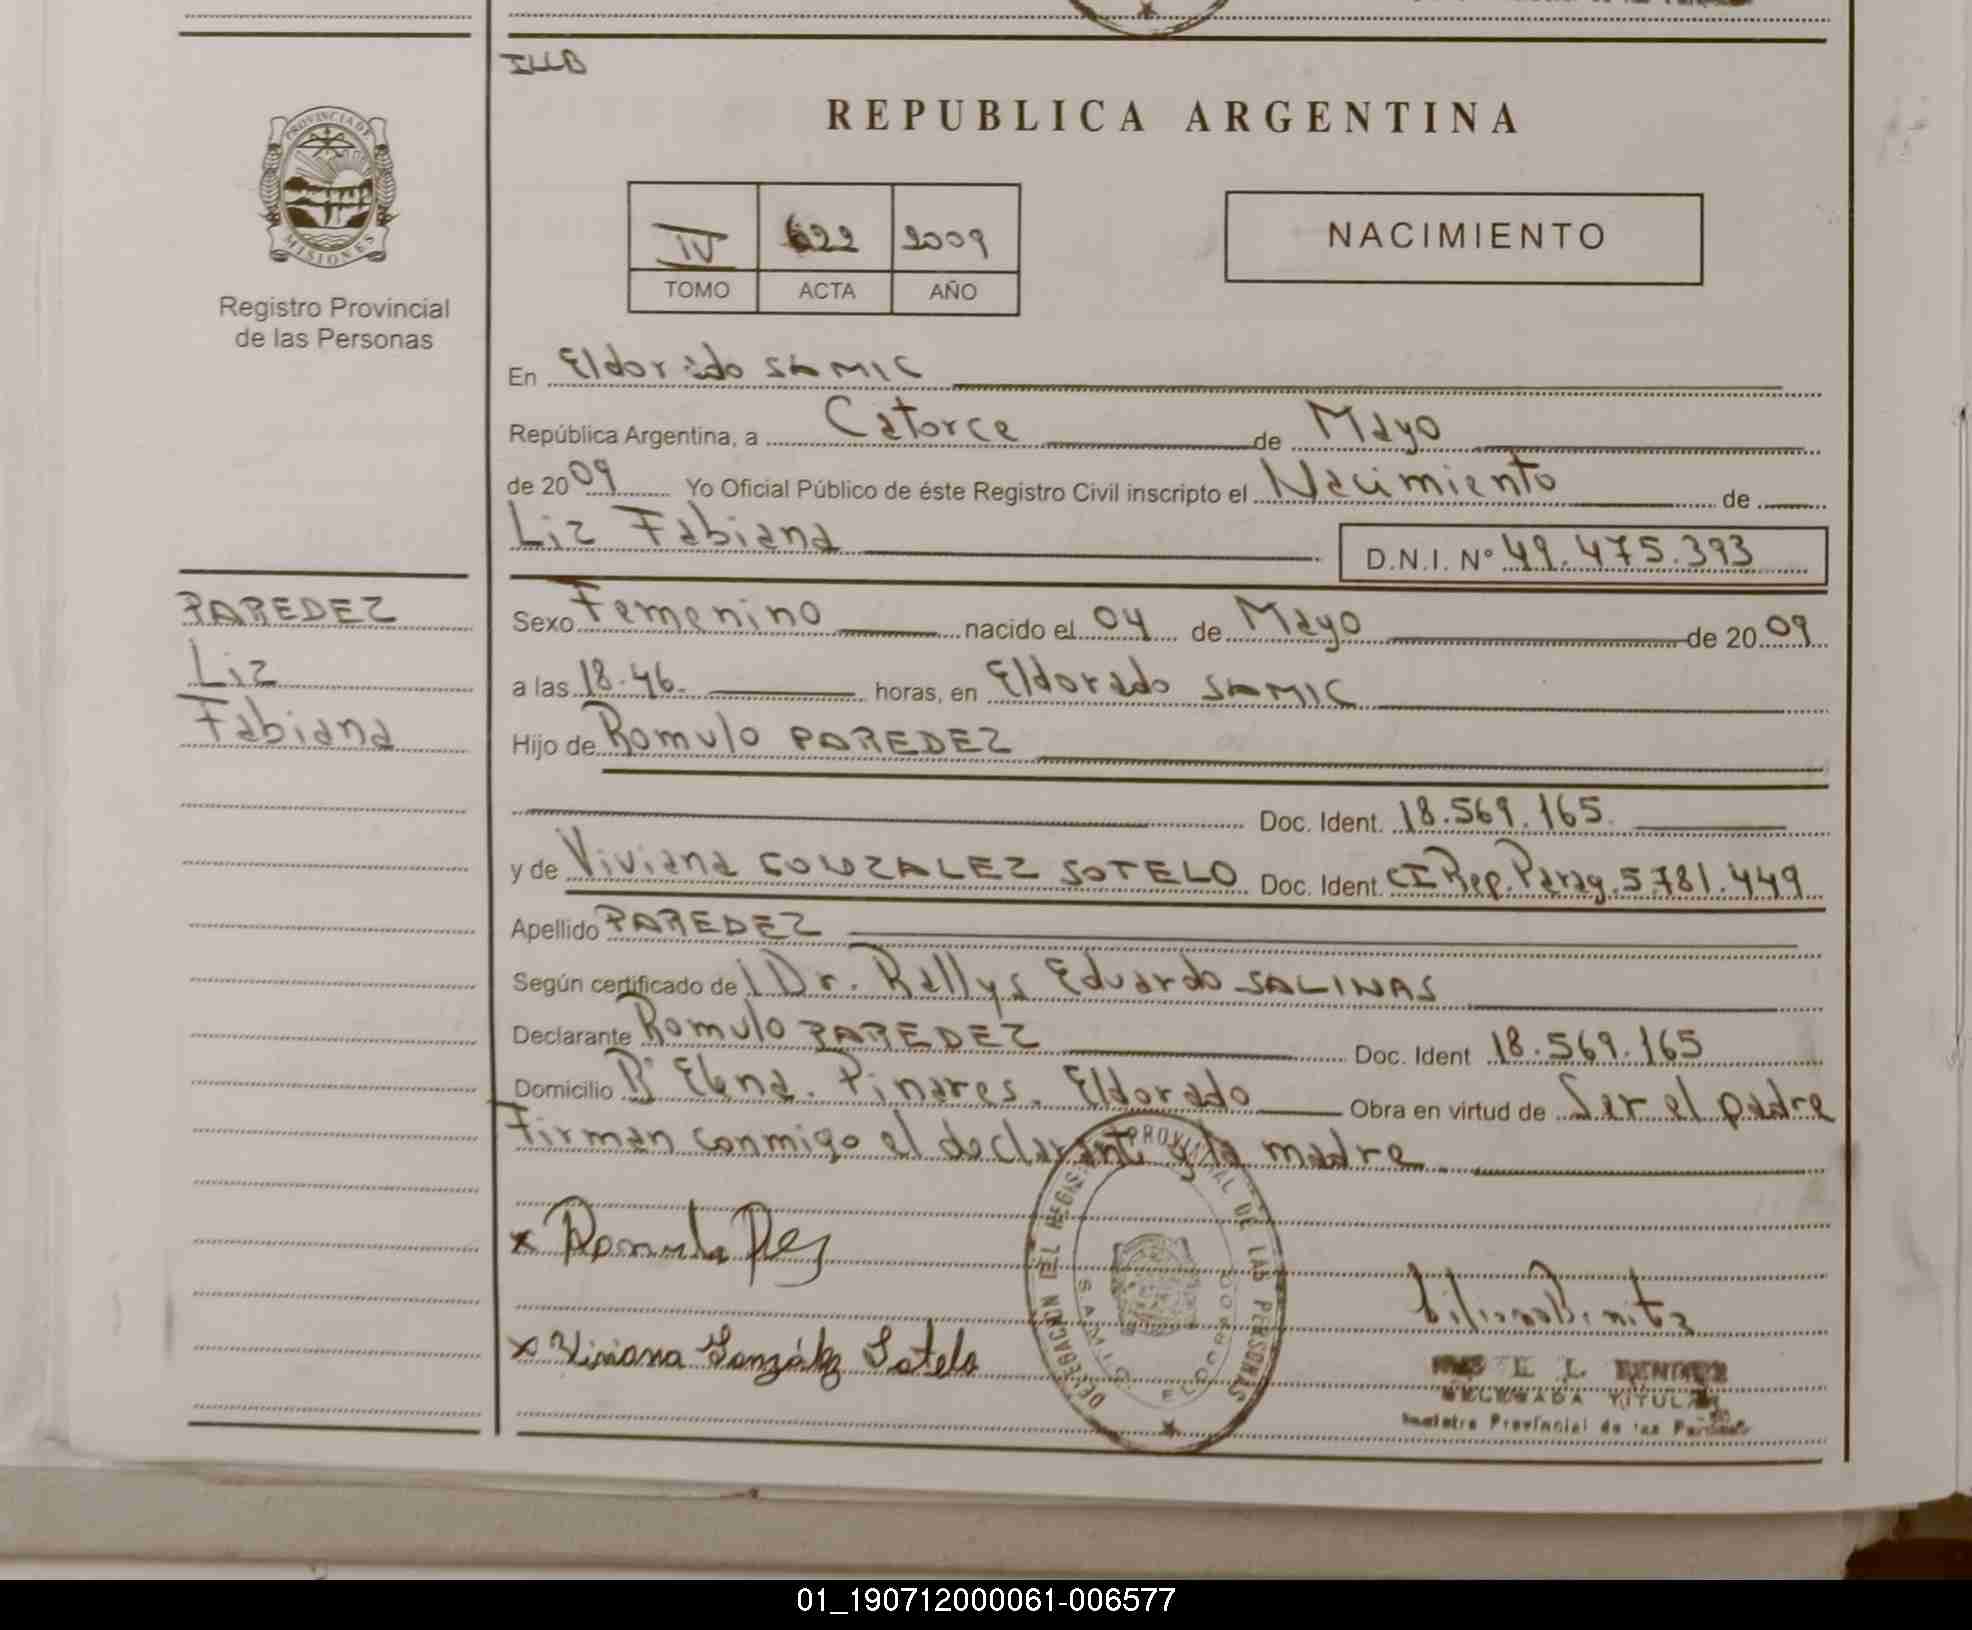 ILLB
PROVINCIA DE
MISIONES
Registro Provincial
de las Personas
REPUBLICA ARGENTINA
IV 622 2009
TOMO ACTA AÑO
NACIMIENTO
En Eldorado SAMIC
República Argentina, a Catorce de Mayo
de 2009 Yo Oficial Público de éste Registro Civil inscripto el Nacimiento de
Liz Fabiana D.N.I. Nº 49.475.393
PAREDEZ
Liz
Fabiana
Sexo Femenino nacido el 04 de Mayo de 2009
a las 18.46. horas, en Eldorado SAMIC
Hijo de Romulo PAREDEZ
Doc. Ident. 18.569.165.
y de Viviana GONZALEZ SOTELO Doc. Ident. CI Rep. Parag. 5.781.449
Apellido PAREDEZ
Según certificado de l Dr. Rallys Eduardo SALINAS
Declarante Romulo PAREDEZ Doc. Ident 18.569.165
Domicilio Bº Elena. Pinares. Eldorado Obra en virtud de Ser el padre
Firman conmigo el declarante y la madre
x Romulo
x Viviana González Sotelo
DELEGACION DEL REGISTRO PROVINCIAL DE LAS PERSONAS
S.A.M.I.C. ELDORADO
DELEGADA TITULAR
Registro Provincial de las Personas
01_190712000061-006577